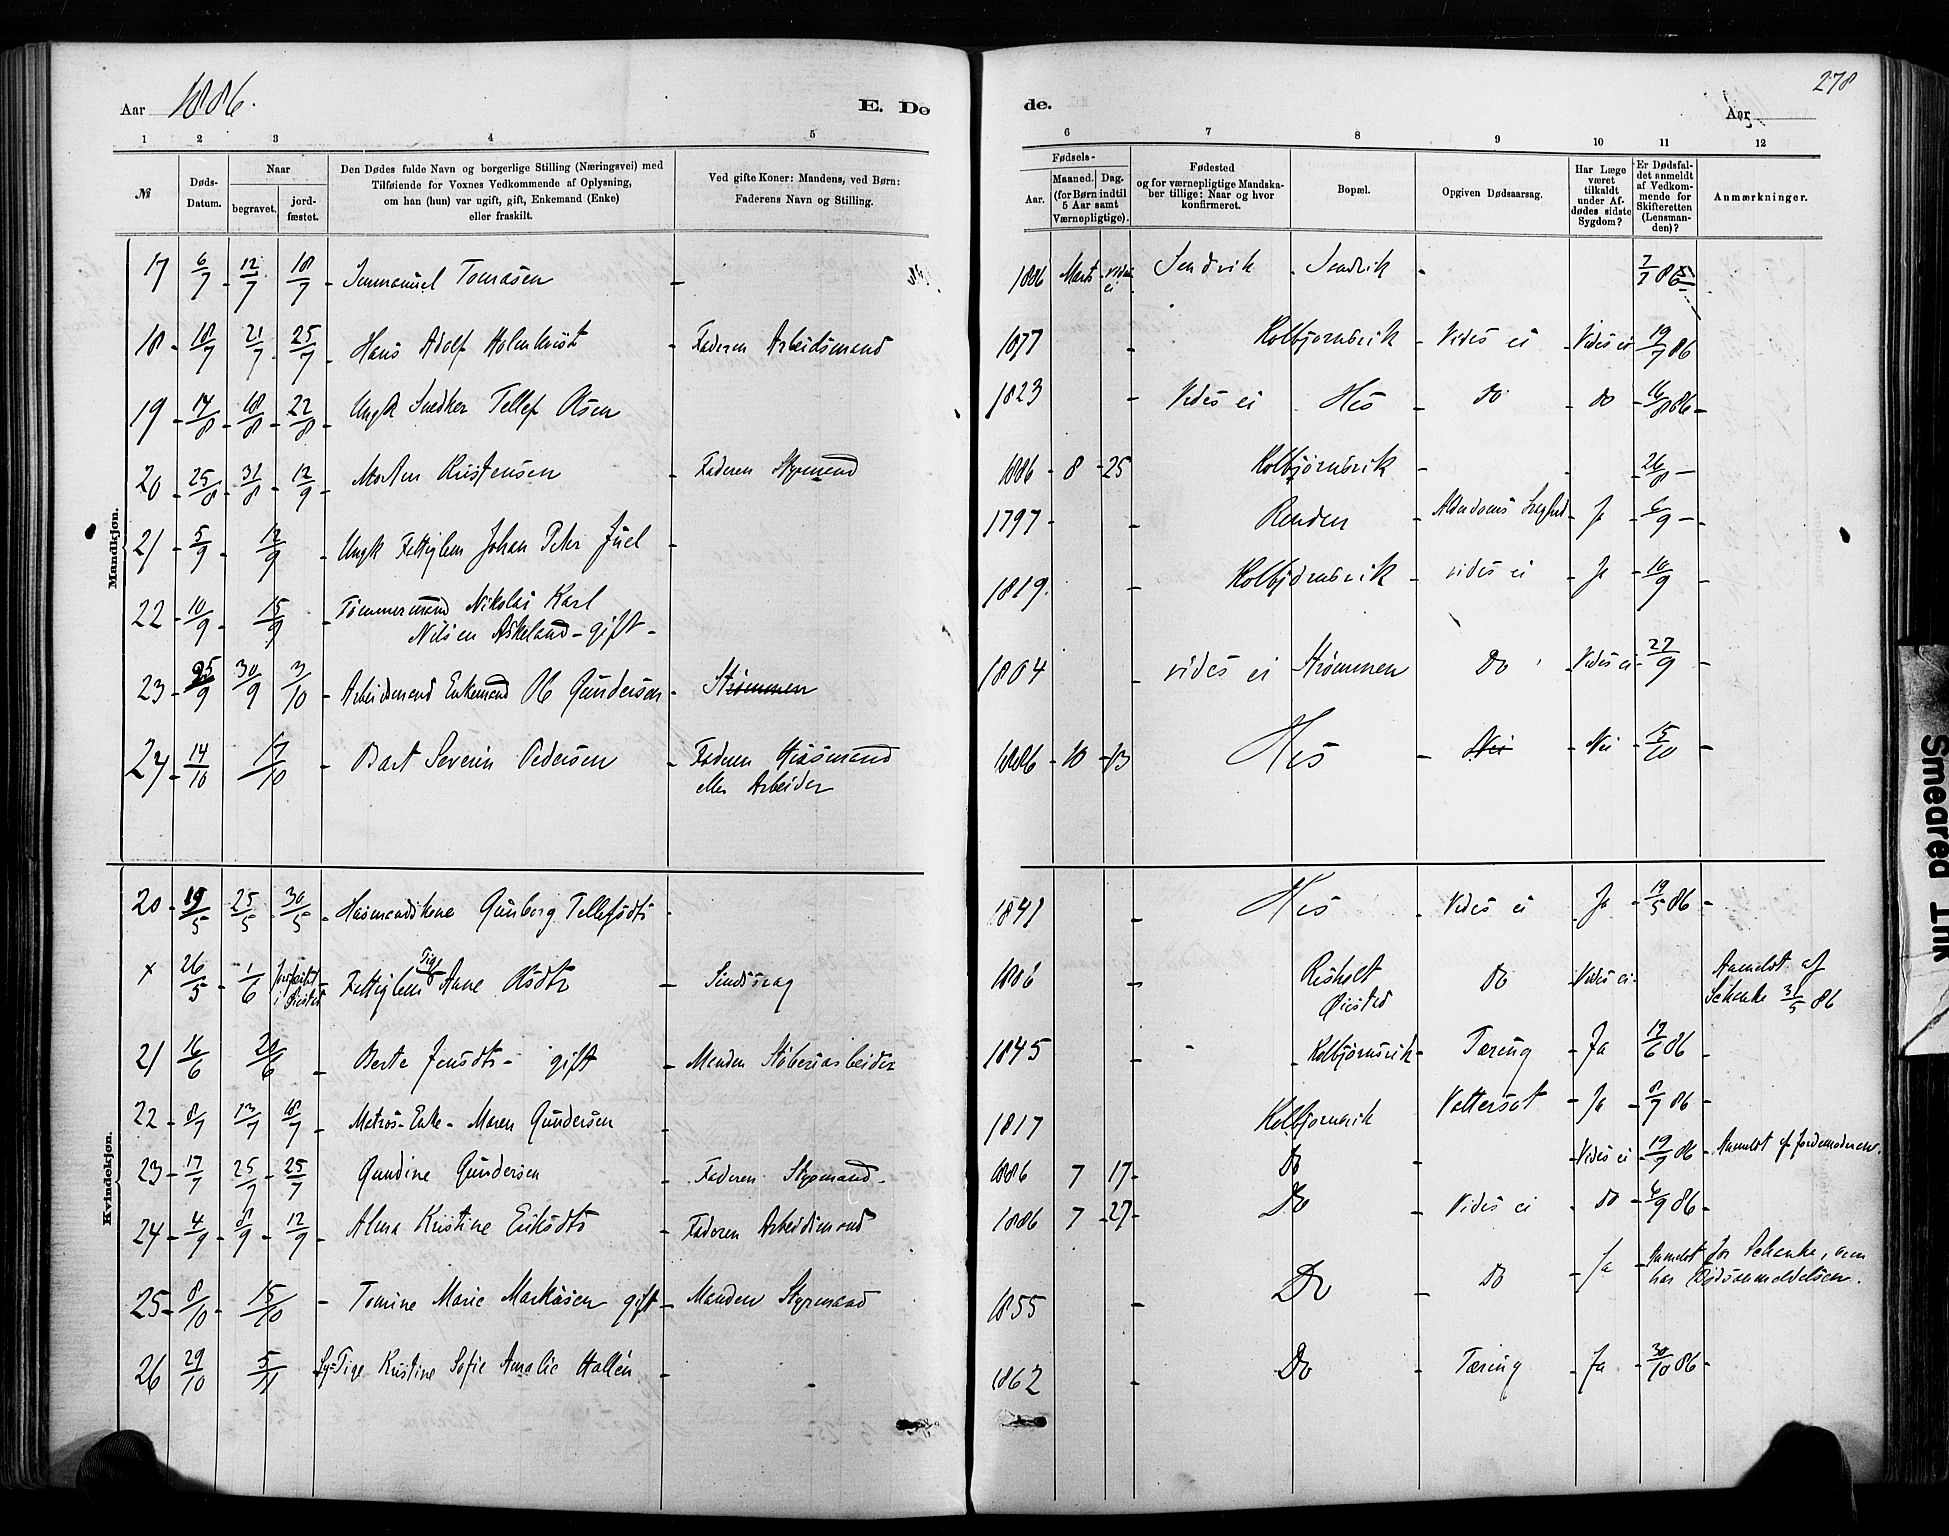 Aar 1886.
E. Dø
de.
278
Aar
1 2 3 4 5 6 7 8 9 10 11 12
№
Døds-
Datum.
Naar
begravet.
jord-
fæstet.
Den Dødes fulde Navn og borgerlige Stilling (Næringsvei) med
Tilføiende for Voxnes Vedkommende af Oplysning,
om han (hun) var ugift, gift, Enkemand (Enke)
eller fraskilt.
Ved gifte Koner: Mandens, ved Børn:
Faderens Navn og Stilling.
Fødsels-
Aar.
Maaned. Dag.
(for Børn indtil
5 Aar samt
Værnepligtige).
Fødested
og for værnepligtige Mandska-
ber tillige: Naar og hvor
konfirmeret.
Bopæl.
Opgiven Dødsaarsag.
Har Læge
været
tilkaldt
under Af-
dødes sidste
Sygdom?
Er Dødsfal-
det anmeldt
af Vedkom-
mende for
Skifteretten
(Lensman-
den)?
Anmærkninger.
Mandkjøn.
17 6/7 12/7 18/7 Immanuel Tomasen 1886 Marts vides ei Sandvik Sandvik 7/7 86
18 18/7 21/7 25/7 Hans Adolf Holmkvist Faderen Arbeidsmand 1877 Kolbjørnsvik Vides ei Vides ei 19/7 86
19 14/8 18/8 22/8 Ungk Snedker Tellef Olsen 1823 Vides ei His Do do 16/8 86
20 25/8 31/8 12/9 Morten Kristensen Faderen Styrmand 1886 8 25 Kolbjørnsvik 26/8
21 5/9 12/9 Ungk Fattiglem Johan Peter Juel 1797 Renden Alderdoms Svaghed Ja 6/9
22 10/9 15/9 Tømmermand Nikolai Karl
Nilsen Askeland - gift - 1819 Kolbjørnsvik vides ei Ja 10/9
23 25/9 30/9 3/10 Arbeidsmand Enkemand Ole Gundersen Strømmen 1804 vides ei Strømmen Do Vides ei 27/9
24 14/10 17/10 Bart Severin Pedersen Faderen Husmand
eller Arbeider 1886 10 13 His Nei Nei 15/10
Kvindekjøn.
20 19/5 25/5 30/5 Husmandskone Gunborg Tellefsdtr 1841 His Vides ei Ja 19/5 86
x 26/5 1/6 jordfæstet
i Øiestad Fattiglem Pige Anne Olsdtr 1806 Risholt
Øiestad Do Vides ei Anmeldt af
Schenke 31/5 86
21 16/6 20/6 Berte Jensdtr - gift Manden Støberiarbeider 1845 Kolbjørnsvik Tæring Ja 17/6 86
22 8/7 13/7 18/7 Matros-Enke - Maren Gundersen 1817 Kolbjørnsvik Vattersot Ja 8/7 86
23 17/7 25/7 25/7 Gundine Gundersen Faderen Styrmand 1886 7 17 Do Vides ei 19/7 86 Anmeldt af Jordemoderen.
24 4/9 8/9 12/9 Alma Kristine Eriksdtr Faderen Arbeidsmand 1886 7 27 Do Vides ei Do 6/9 86
25 8/10 15/10 Tomine Marie Markusen gift Manden Styrmand 1855 Do Do Ja Anmeldt for Schenke, som
har Dødsanmeldelsen.
26 29/10 5/11 Sy-Pige Kristine Sofie Amalie Hallén 1862 Do Tæring Ja 30/10 86
Smeared Ink